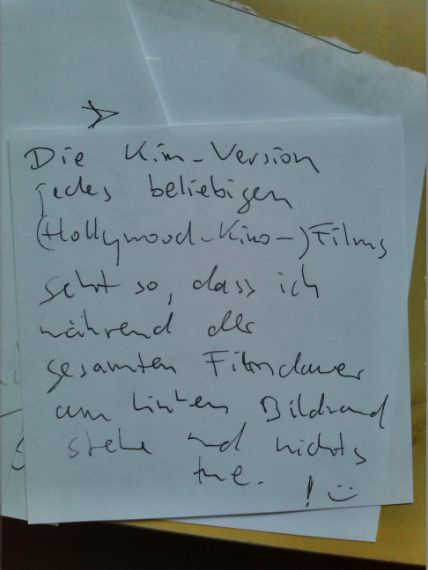 Die Kim-Version
jedes beliebigen
(Hollywood-Kino-)Films
geht so, dass ich
während der
gesamten Filmdauer
am linken Bildrand
stehe und nichts
tue.
! :)